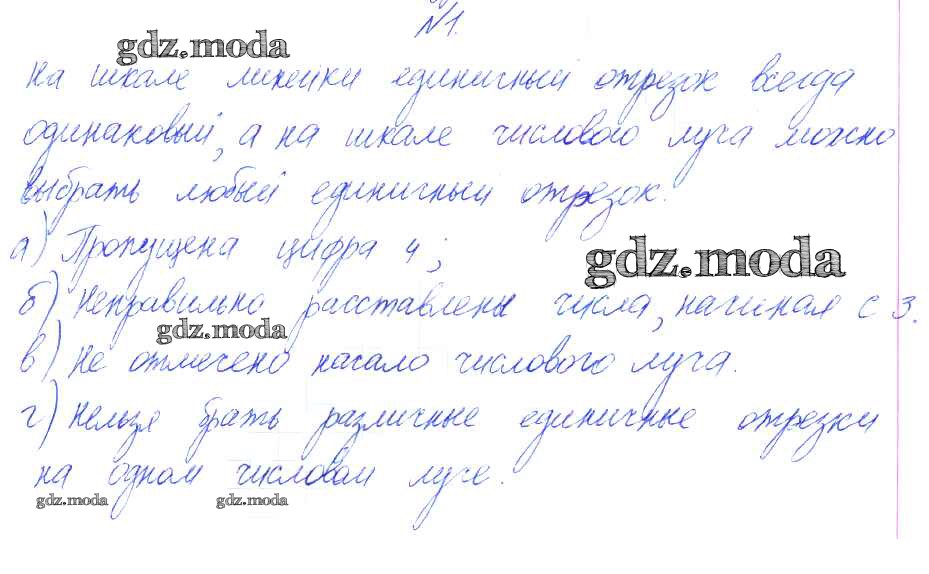 №1.
gdz.moda
На шкале линейки единичный отрезок всегда
одинаковый, а на шкале числового луча можно
выбрать любый единичный отрезок.
а) Пропущена цифра 4;
gdz.moda
б) Неправильно расставлены числа, начиная с 3.
gdz.moda
в) Не отмечено начало числового луча.
г) Нельзя брать различные единичные отрезки
на одном числовом луче.
gdz.moda gdz.moda